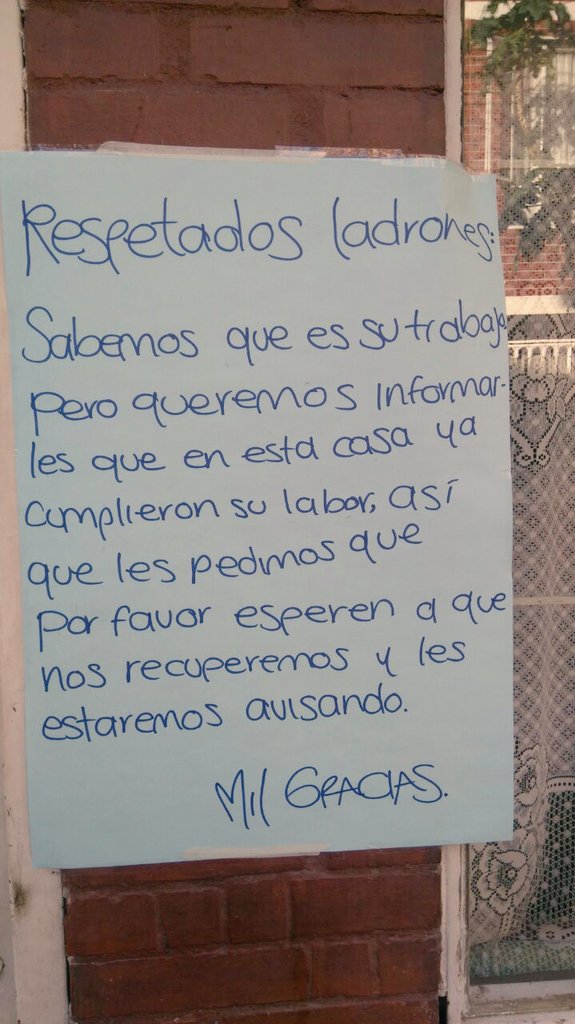 Respetados ladrones:
Sabemos que es su trabajo
pero queremos informar-
les que en esta casa ya
cumplieron su labor, así
que les pedimos que
por favor esperen a que
nos recuperemos y les
estaremos avisando.
Mil GRACIAS.